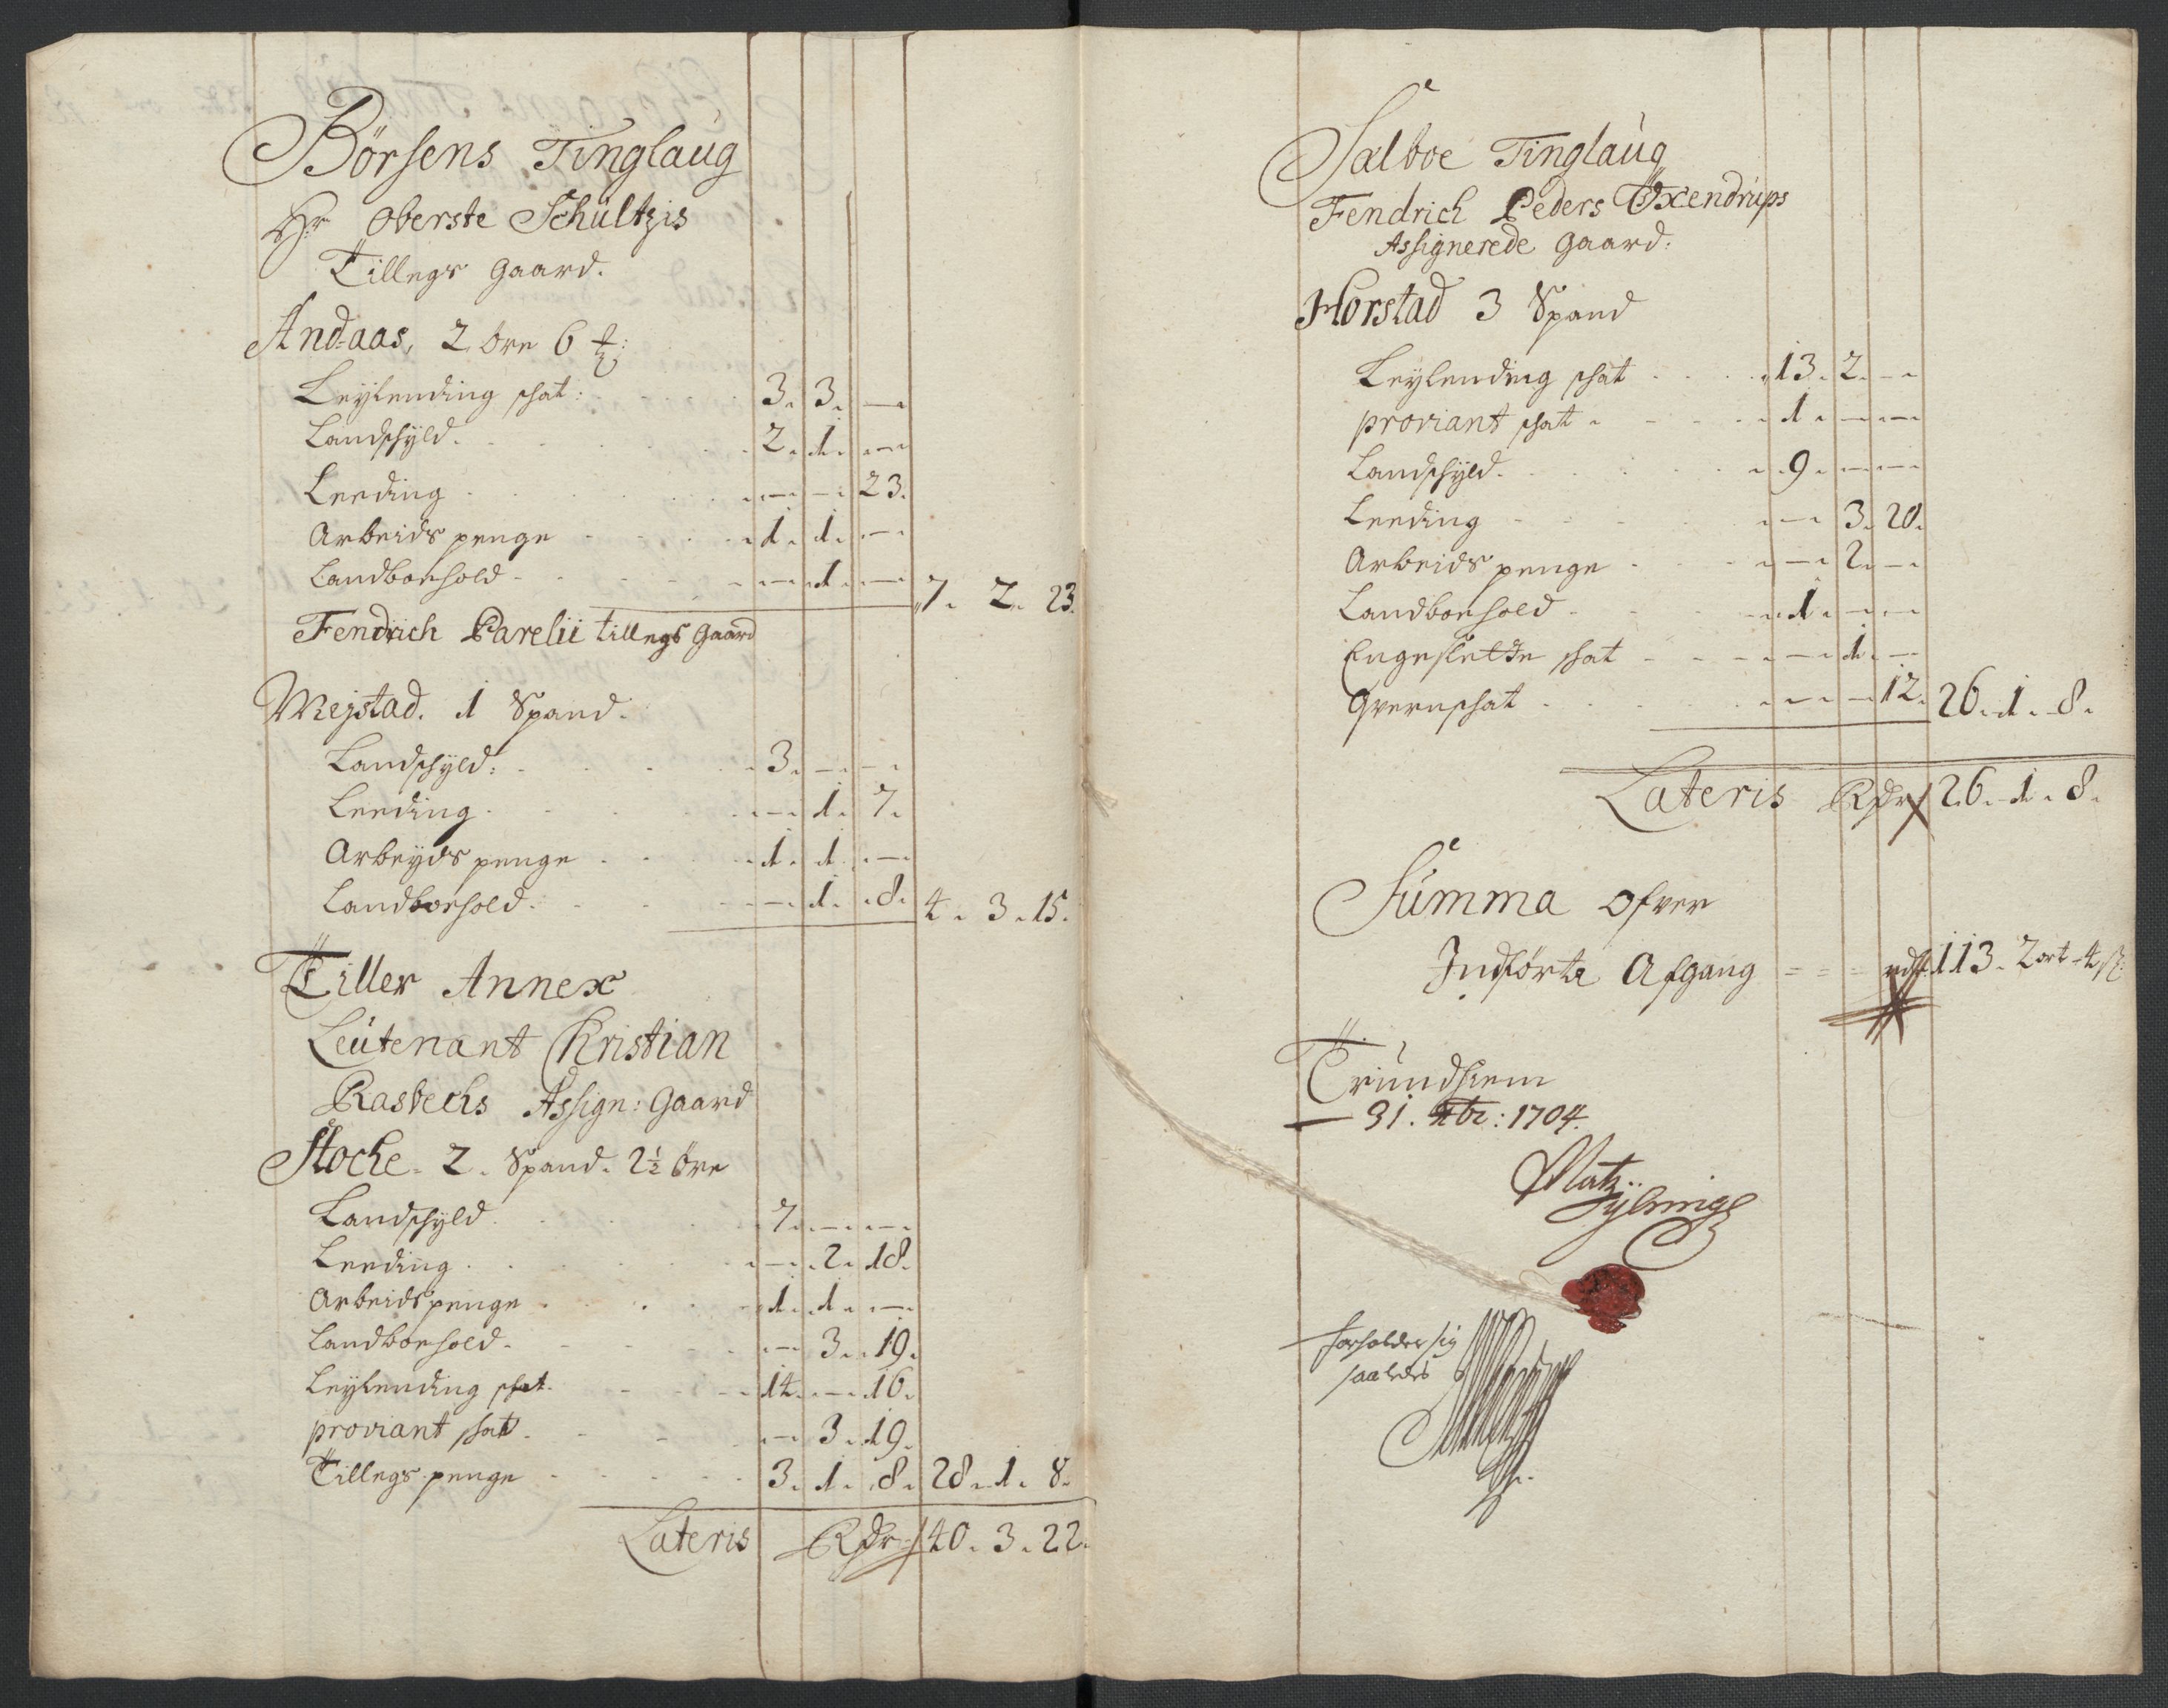 Börsens Tinglaug
Hr Oberste Schultzis
Tillegs Gaard.
Andaas, 2 Øre 6
Leÿlending schat: 3. 3. —
Landschÿld. 2. 1. —
Leeding — — 23.
Arbeids penge 1. 1. —
Landboehold — 1. — 7. 2. 23.
Fendrich Parelii tillegs Gaard
Mejstad. 1 Spand.
Landschÿld: 3. — —
Leeding. — 1. 7.
Arbeÿds penge 1. 1. —
Landboehold. — 1. 8. 4. 3. 15.
Tiller Annex
Leutenant Christian
Rasbechs Assign: Gaard
Stoche. 2. Spand. 2½ Øre
Landschÿld. 7. — —
Leeding. — 2. 18.
Arbeids penge. 1. 1. —
Landboehold. — 3. 19.
Leÿlending schat. 14. — 16.
proviant schat. — 3. 19.
Tillegs penge 3. 1. 8. 28. 1. 8.
Lateris Rdr 40. 3. 22.
Sælboe Tinglaug
Fendrich Peders Öxendrups
Assignerede Gaard:
Horstad 3 Spand
Leÿlending schat 13. 2. —
proviant schat 1. — —
Landschÿld. 9. — —
Leeding — 3. 20.
Arbeids penge — 2. —
Landboehold 1. — —
Engeslette schat — 1. —
Qvernschat — — 12. 26. 1. 8.
Lateris Rdr 26. 1. 8.
Summa Ofver
Indførte Afgang = = = rdr 113. 2 ort 4 ß
Trundhiem
31. Xbr: 1704.
forholder sig
saaledes